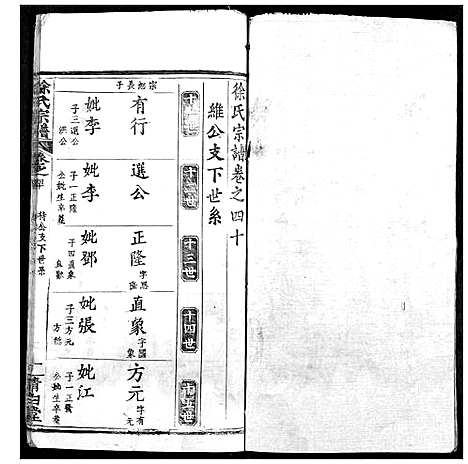 徐氏宗譜卷之四十
維公支下世系
十一世
十二世
十三世
十四世
十五世
宗旭長子
有行
妣李
子三選公
洪公
選公
妣李
子一正隆
公妣生卒葬
正隆
字思隆
妣鄧
子四直象
直勳
直象
字國象
妣張
子三方元
方德
方元
字有元
妣江
子一正賢
公妣生卒葬
徐氏宗譜
卷之四
公支下世系
一
清白堂